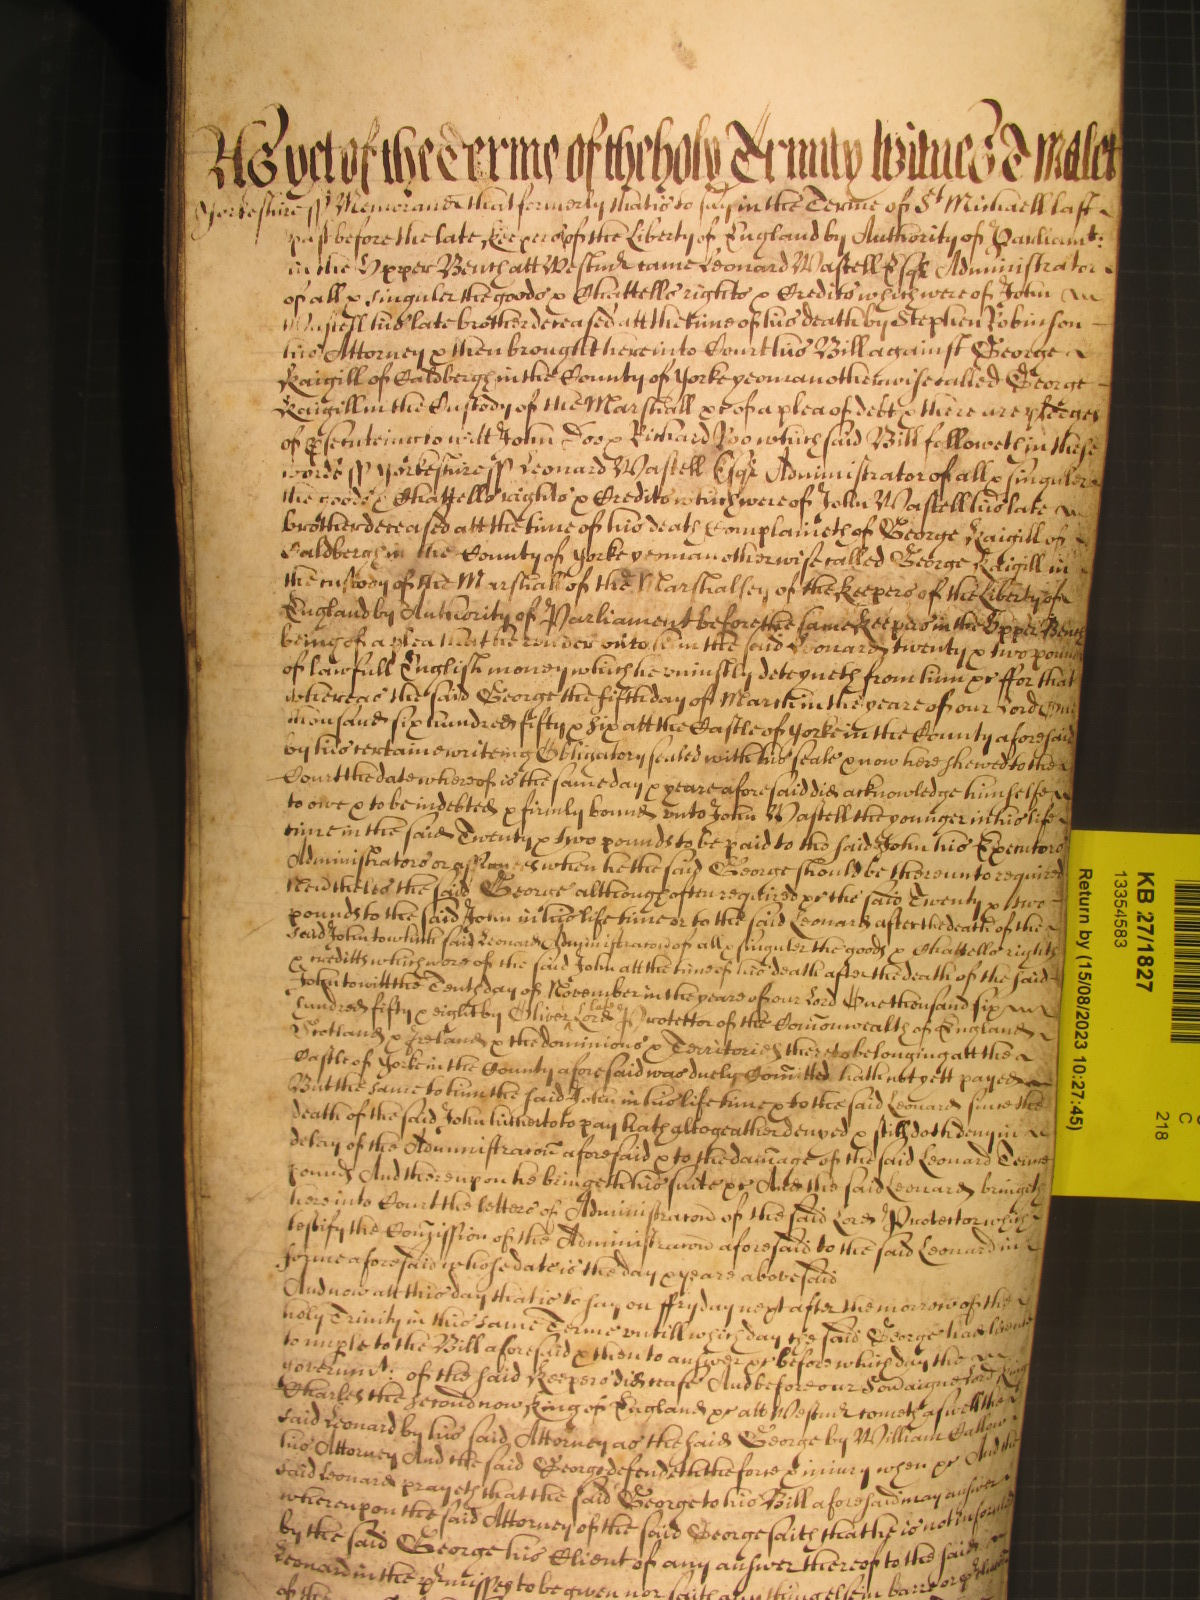 As yet of the Terme of the holy Trinity Witnes T Malet
Yorkeshire ss Memorand that formerly that is to say in the Terme of St Michaell last
past before the late Keepers of the Liberty of England by Authority of Parliamt:
in the Upper Bench att Westmr came Leonard Wastell Esqr Administrator
of all & singuler the goods & Chattells rights & Credits which were of John
Wastell his late brother deceased att the time of his death by Stephen Robinson
his Attorney & then brought here into Court his Bill against George
Raigill of Caldbergh in the County of Yorke yeoman otherwise called George
Raigill in the Custody of the Marshall &c of a plea of debt & there are pledges
of prosecuteing to witt John Doo & Richard Roo which said Bill followeth in these
words ss Yorkeshire ss Leonard Wastell Esqr Administrator of all & singuler
the goods & Chattells rights & Credits which were of John Wastell his late
brother deceased att the time of his death Complaineth of George Raigill of
Caldbergh in the County of Yorke yeoman otherwise called George Raigill in
the custody of the Marshall of the Marshalsey of the Keepers of the Liberty of
England by Authority of Parliament before the same Keepers in the Upper Bench
being of a plea that he render unto him the said Leonard twenty & two pounds
of lawfull English money which he uniustly deteyneth from him &c ffor that
whereas the said George the fifth day of March in the yeare of our Lord One
thousand six hundred fifty & six att the Castle of Yorke in the County aforesaid
by his certaine writeing Obligatory sealed with his seale & now here shewed to the
Court the date whereof is the same day & yeare aforesaid did acknowledge himselfe
to owe & to be indebted & firmly bound unto John Wastell the younger in his life
time in the said Twenty & two pounds to be paid to the said John his Executors
Administrators or assignes when he the said George should be thereunto required
Neverthelesse the said George although often required &c the said Twenty & two
pounds to the said John in his life time or to the said Leonard after the death of the
said John to which said Leonard Administracon of all & singuler the goods & Chattells rights
& creditts which were of the said John att the time of his death after the death of the said
John to witt the Tenth day of November in the yeare of our Lord One thousand six
hundred fifty & eight by Oliver late Lord Protector of the Comonwealth of England
Scotland & Ireland & the dominions & Territories thereto belonging att the
Castle of Yorke in the County aforesaid was duely Comitted hath not yett payed
But the same to him the said John in his life time & to the said Leonard since the
death of the said John hitherto to pay hath altogeather denyed & still doth deny in
delay of the Administracon aforesaid & to the damage of the said Leonard Tenne
pounds And thereupon he bringeth his suite &c And the said Leonard bringeth
here into Court the letters of Administracon of the said Lord Protector which
testify the Comission of the Administracon aforesaid to the said Leonard in
forme aforesaid whose date is the day & yeare abovesaid
And now att this day that is to say on ffryday next after the morrow of the
holy Trinity in this same Terme untill which day the said George had licence
to imple to the Bill aforesaid & then to answer &c before which day the
governmt: of the said Keepers did cease And before our Soveraigne Lord King
Charles the second now King of England &c att Westmr cometh aswell the
said Leonard by his said Attorney as the said George by William Callow
his Attorney And the said George defendeth the force & iniury when &c And the
said Leonard prayeth that the said George to his Bill aforesaid may answer
whereupon the said Attorney of the said George saith that he is not informed
by the said George his Client of any answer thereof to the said
Leonard in the premisses to be given nor saith any thing else in barre or
of the
KB 27/1827
13354583
Return by (15/08/2023 10:27:45)
C
218